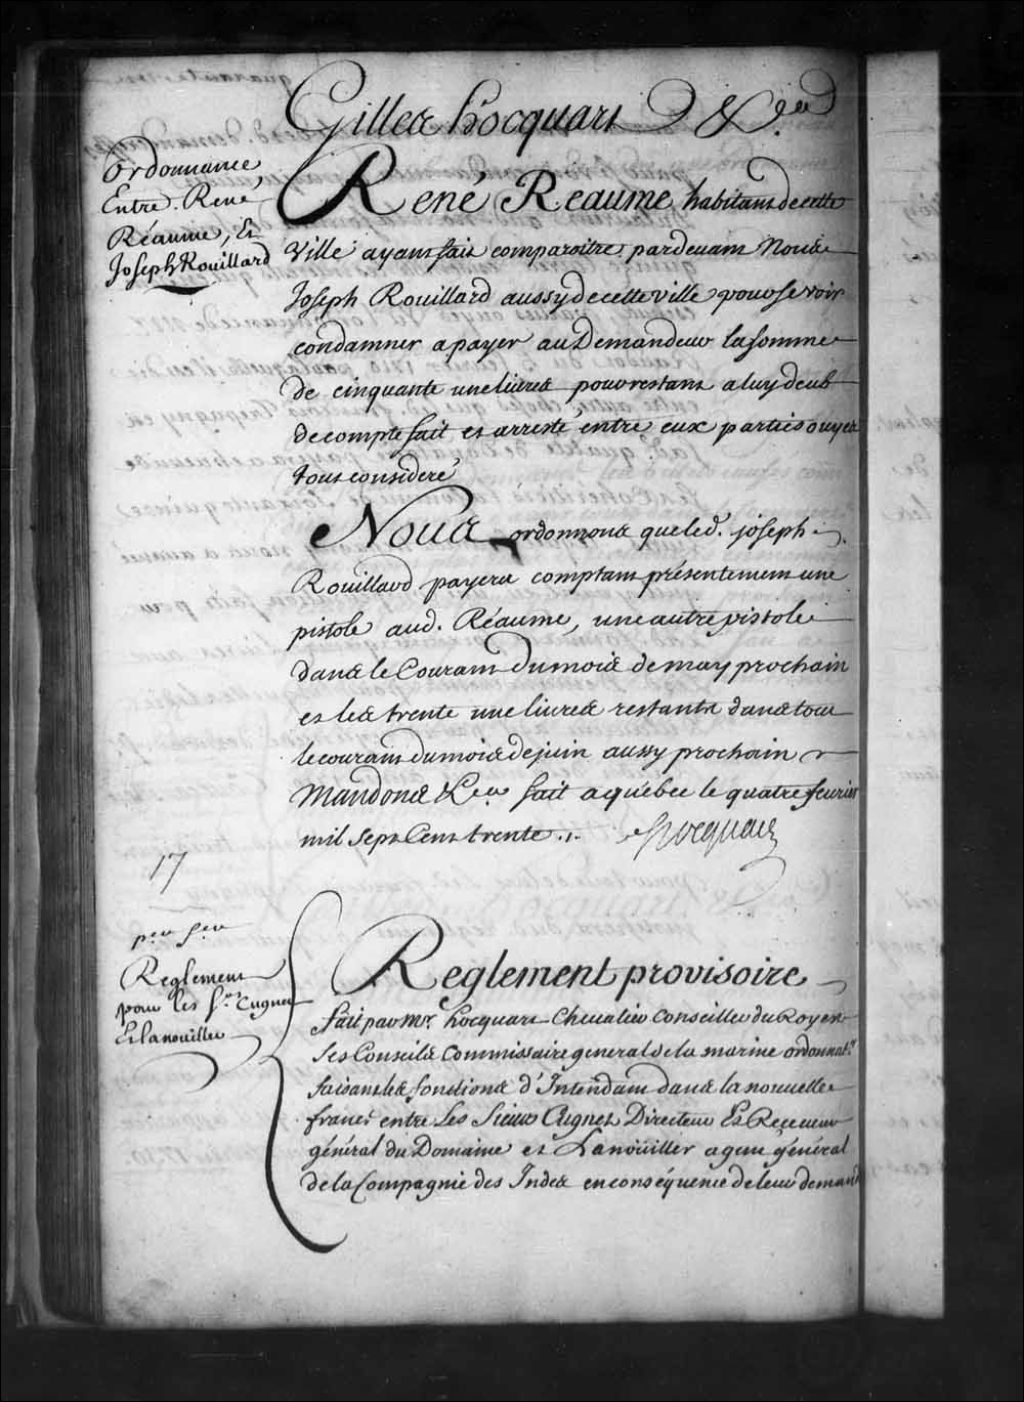 Gilles hocquart &c.ª
Ordonnance
Entre René
Réaume, Et
Joseph Rouillard
René Reaume habitant de cette
Ville ayant fait comparoitre pardevant Nous
Joseph Rouillard aussy de cette ville pour se voir
condamner a payer au Demandeur la somme
de cinquante une livres pour restant a luy deub
de compte fait et arresté entre eux parties ouyes
tout consideré
Nous ordonnons que led. joseph
Rouillard payera comptant présentement une
pistole aud. Réaume, une autre pistole
dans le Courant du mois de may prochain
et les trente une livres restants dans tout
le courant du mois de juin aussy prochain
Mandons &c.ª fait a quebec le quatre feurier
mil sept Cent trente ./. Hocquart
17
p.er f.er
Reglement
pour les S.rs Cugnet
Et lanouiller
Reglement provisoire
fait par Mr. hocquart Chevalier Conseiller du Roy en
Ses Conseils Commissaire general de la marine ordonnat.r
faisant les fonctions d'Intendant dans la nouvelle
france entre Les Sieurs Cugnet Directeur Et Receveur
général du Domaine et Lanoüiller agent général
de la Compagnie des Indes en conséquence de leur demand